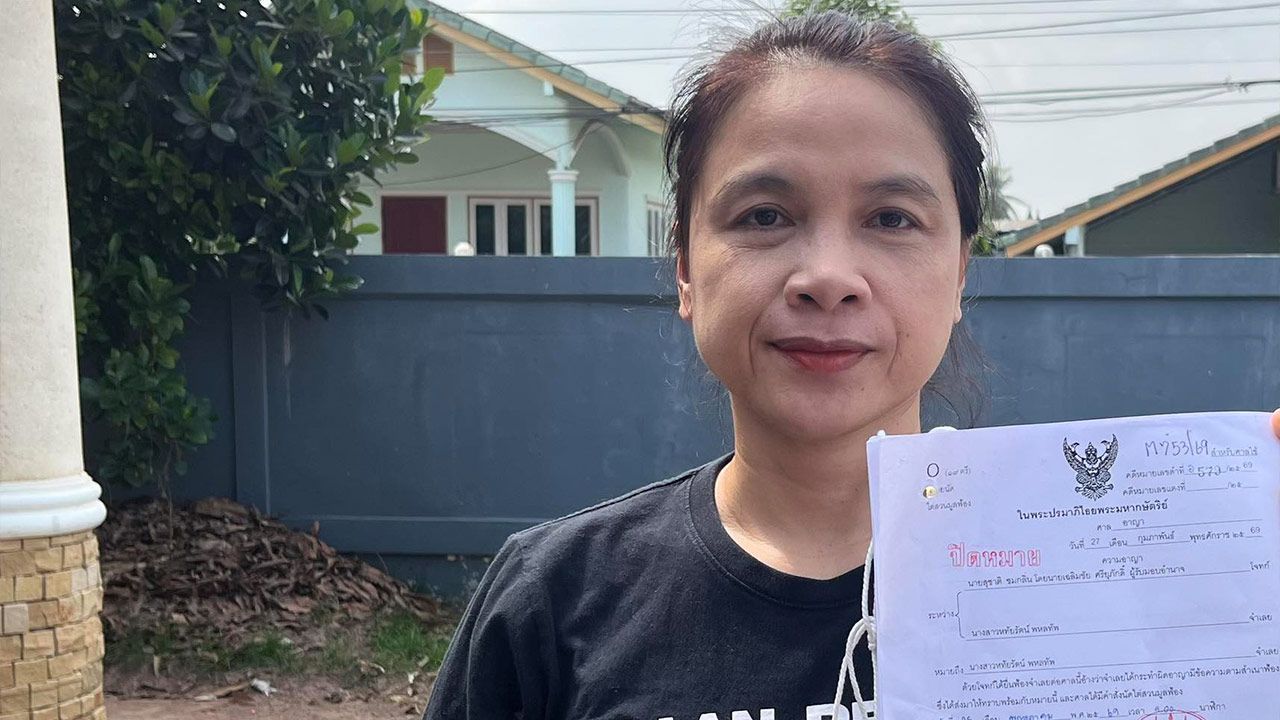 ต๗53/69
(๑๙ ตรี)
สำหรับศาลใช้
นัด
ไต่สวนมูลฟ้อง
คดีหมายเลขดำที่ อ 573 /๒๕ 69
คดีหมายเลขแดงที่ /๒๕
ในพระปรมาภิไธยพระมหากษัตริย์
ศาล อาญา
วันที่ 27 เดือน กุมภาพันธ์ พุทธศักราช ๒๕ 69
ปิดหมาย
ความอาญา
นายสุชาติ ชมกลิ่น โดยนายเฉลิมชัย ศรียุภักดิ์ ผู้รับมอบอำนาจ โจทก์
ระหว่าง
นางสาวหทัยรัตน์ พหลทัพ จำเลย
หมายถึง นางสาวหทัยรัตน์ พหลทัพ จำเลย
ด้วยโจทก์ได้ยื่นฟ้องจำเลยต่อศาลนี้อ้างว่าจำเลยได้กระทำผิดอาญามีข้อความตามสำเนาฟ้อง
ซึ่งได้ส่งมาให้ทราบพร้อมกับหมายนี้ และศาลได้มีคำสั่งนัดไต่สวนมูลฟ้อง
เดือน พฤษภาคม พ.ศ. ๒๕ 69 นาฬิกา